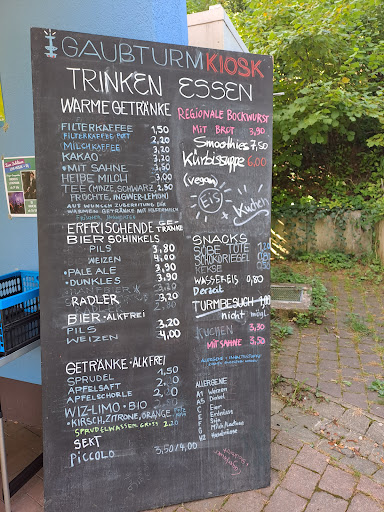 GAUßTURM KIOSK
TRINKEN ESSEN
WARME GETRÄNKE
FILTERKAFFEE 1,50
FILTERKAFFEE POTT 2,20
MILCHKAFFEE 2,20
KAKAO 2,20
• MIT SAHNE 3,50
HEIßE MILCH 3,00
TEE (MINZE, SCHWARZ, 2,50
FRÜCHTE, INGWER-LEMON)
AUF WUNSCH ZUBEREITUNG DER
WARMEN GETRÄNKE MIT HAFERMILCH
ERFRISCHENDE GE-
TRÄNKE
BIER SCHINKELS
PILS 3,80
WEIZEN 4,00
• PALE ALE 3,90
• DUNKLES 3,90
RADLER 3,20
BIER • ALKFREI
PILS 3,20
WEIZEN 4,00
GETRÄNKE • ALKFREI
SPRUDEL 1,50
APFELSAFT
APFELSCHORLE
WIZ-LIMO • BIO
• KIRSCH, ZITRONE, ORANGE
SPRUDELWASSER GROSS 2,20
SEKT
PICCOLO 3,50/4,00
REGIONALE BOCKWURST
MIT BROT 3,90
Smoothies 7,50
Kürbissuppe 6,00
(vegan)
Eis
+ Kuchen
SNACKS
SÜßE TÜTE
KEKSE
WASSEREIS 0,80
Derzeit
TURMBESUCH 1,00
nicht mögl.
KUCHEN 3,30
MIT SAHNE 3,50
ALLERGENE
A1 Weizen
A5 Dinkel
C Eier
E Erdnüsse
F Soja
G Milch/Laktose
H2 Haselnüsse